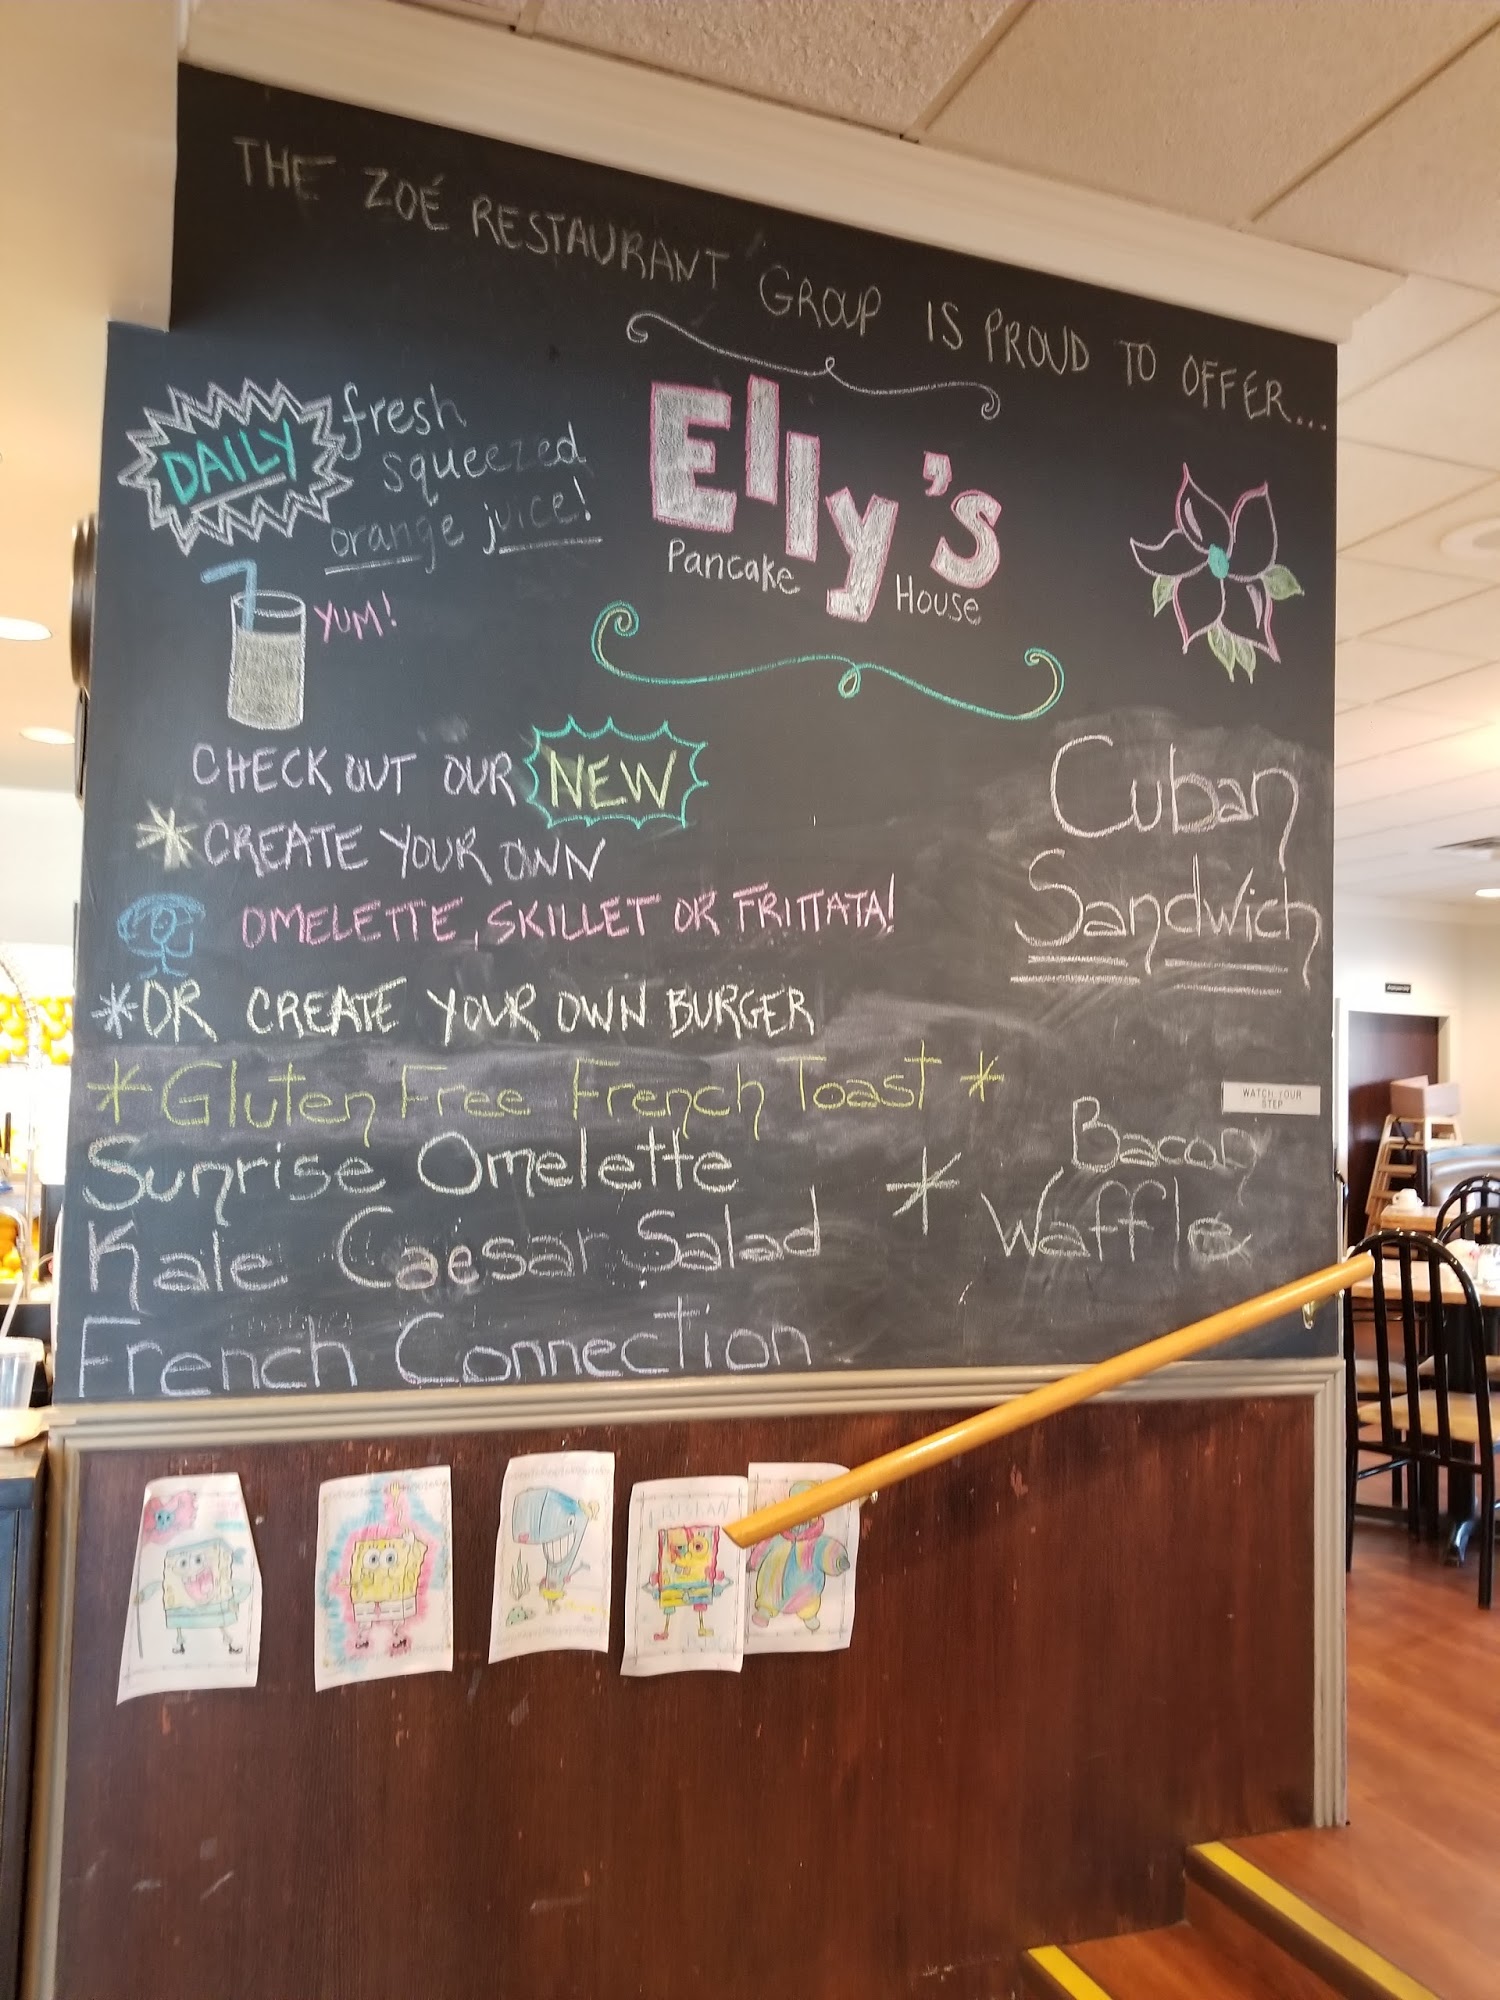 THE ZOÉ RESTAURANT GROUP IS PROUD TO OFFER...
DAILY
fresh
squeezed
orange juice!
YUM!
Elly's
Pancake House
CHECK OUT OUR NEW
*CREATE YOUR OWN
OMELETTE, SKILLET OR FRITTATA!
*OR CREATE YOUR OWN BURGER
*Gluten Free French Toast*
Sunrise Omelette
Kale Caesar Salad
French Connection
Cuban
Sandwich
WATCH YOUR
STEP
* Bacon
Waffle